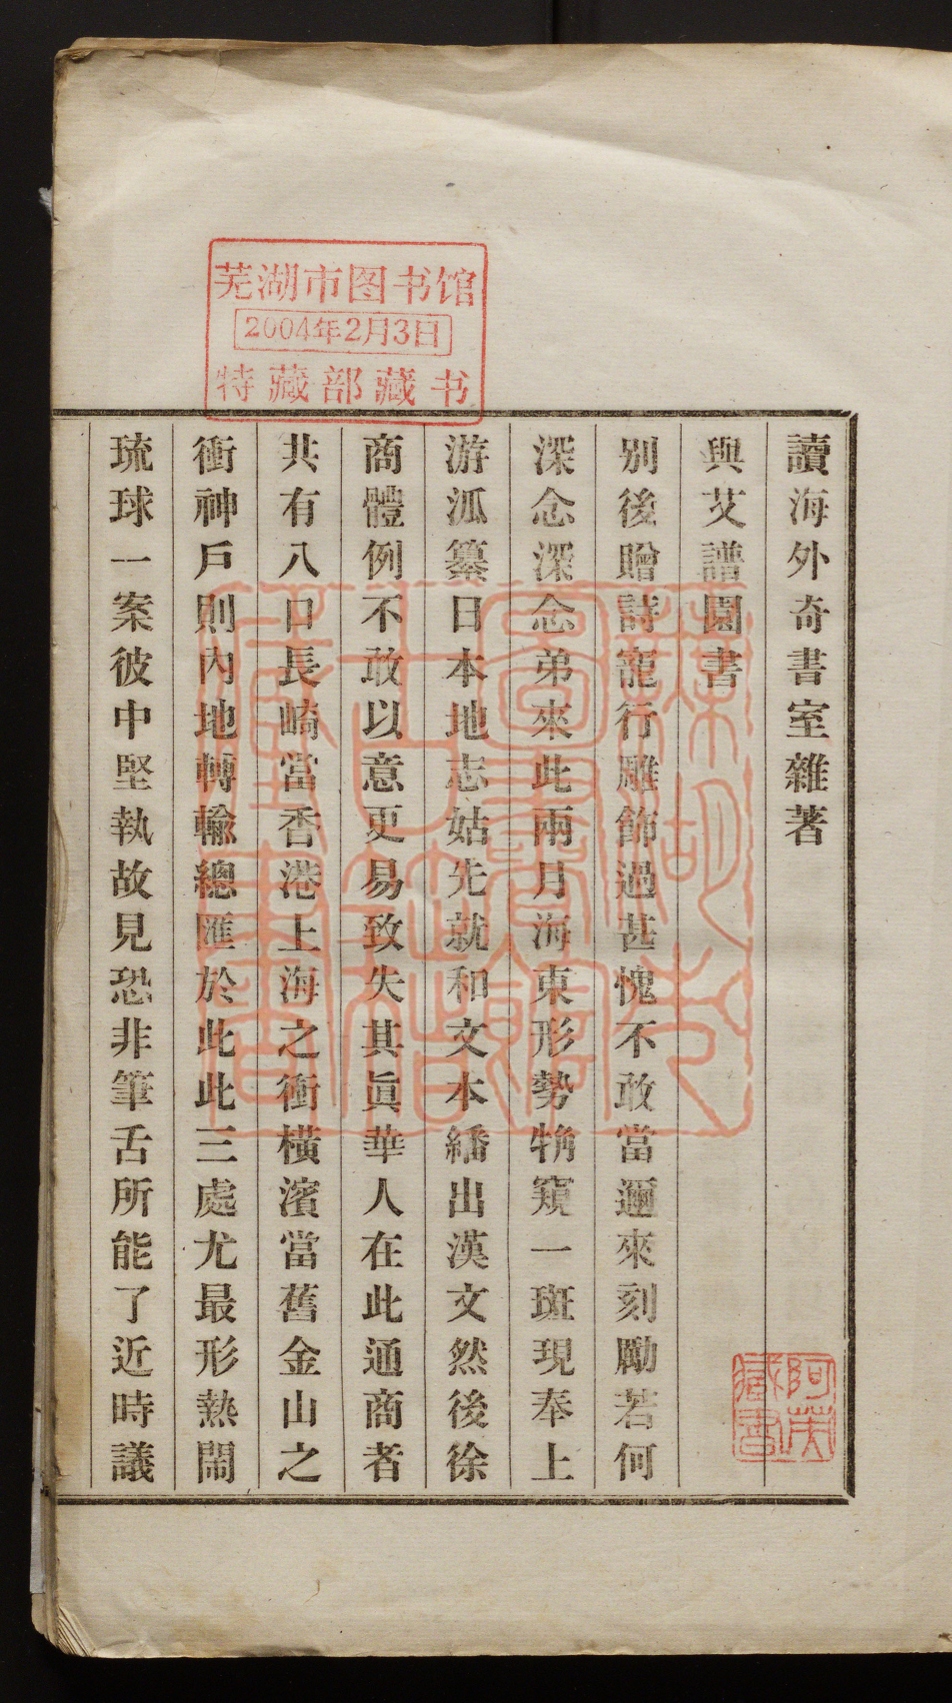 芜湖市图书馆
2004年2月3日
特藏部藏书
讀海外奇書室雜著
與艾譜園書
别後贈詩寵行雕飾過甚愧不敢當邇來刻勵若何
深念深念弟來此兩月海東形勢觕窺一斑現奉上
游泒纂日本地志姑先就和文本繙出漢文然後徐
商體例不敢以意更易致失其眞華人在此通商者
共有八口長崎當香港上海之衝橫濱當舊金山之
衝神戶則內地轉輸總匯於此此三處尤最形熱鬧
琉球一案彼中堅執故見恐非筆舌所能了近時議
阿英藏書